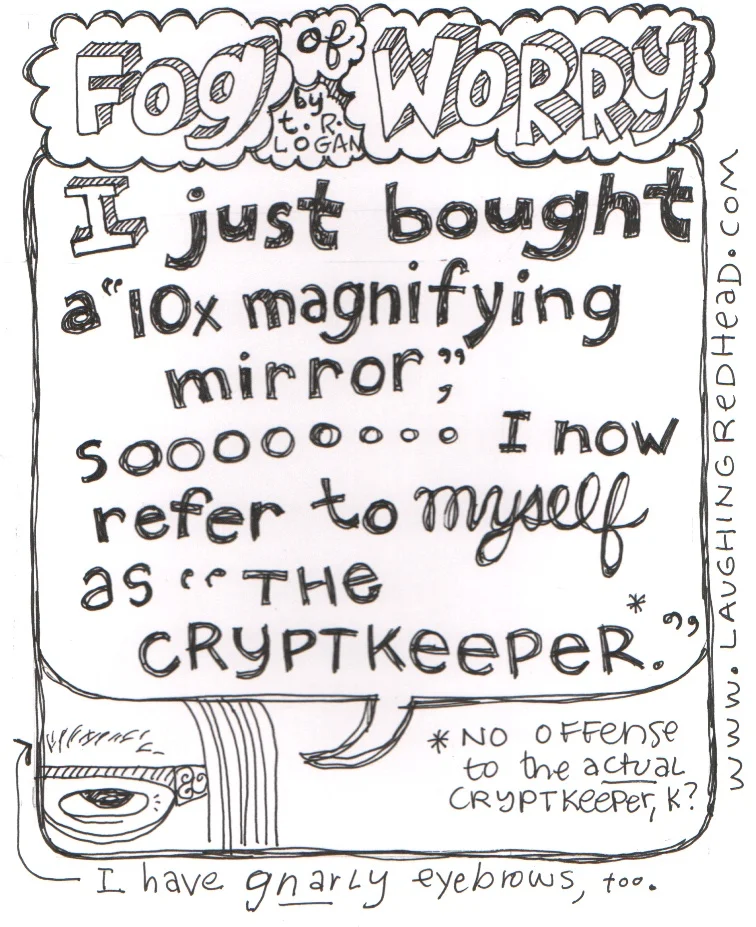 FOG of WORRY
by
t. R.
LOGAN
I just bought
a "10x magnifying
mirror,"
sooooooooo I now
refer to myself
as "THE
CRYPTKEEPER.*"
*NO OFFENSE
to the actual
CRYPTKEEPER, K?
I have gnarly eyebrows, too.
www.LAUGHINGREDHEAD.COM